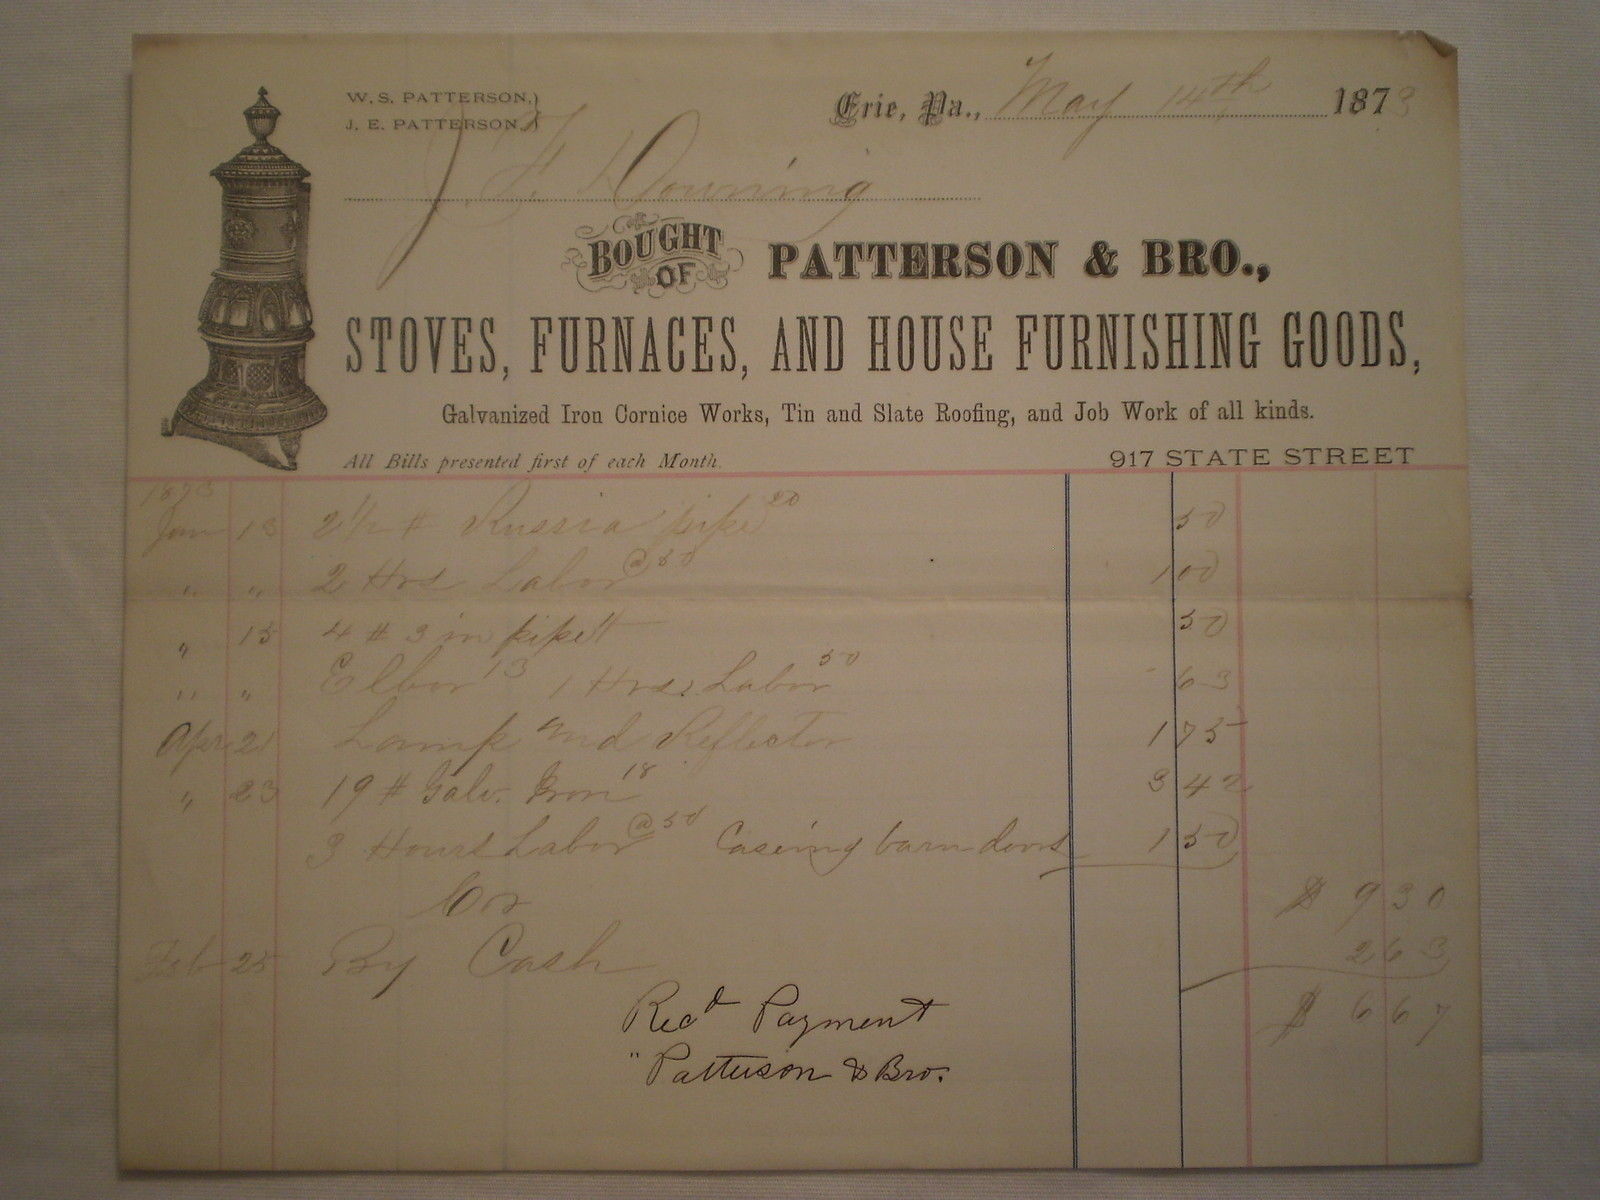 W. S. PATTERSON,
J. E. PATTERSON.
Erie, Pa., May 14th 1873
J. F. Downing
BOUGHT OF PATTERSON & BRO.,
STOVES, FURNACES, AND HOUSE FURNISHING GOODS,
Galvanized Iron Cornice Works, Tin and Slate Roofing, and Job Work of all kinds.
All Bills presented first of each Month. 917 STATE STREET
1873
Jan 13 2 1/2 # Russia pipe 20 50
" " 2 Hrs Labor @ 50 1 00
" 15 4 # 3 in pipe 50
" " Elbow 13 1 Hrs. Labor 50 63
Apr 21 Lamp and Reflector 1 75
" 23 19 # Galv. Iron 18 3 42
3 Hours Labor @ 50 Caseing barn doors 1 50
$ 9 30
Cr
Feb 25 By Cash 2 63
$ 6 67
Recd Payment
" Patterson & Bro.